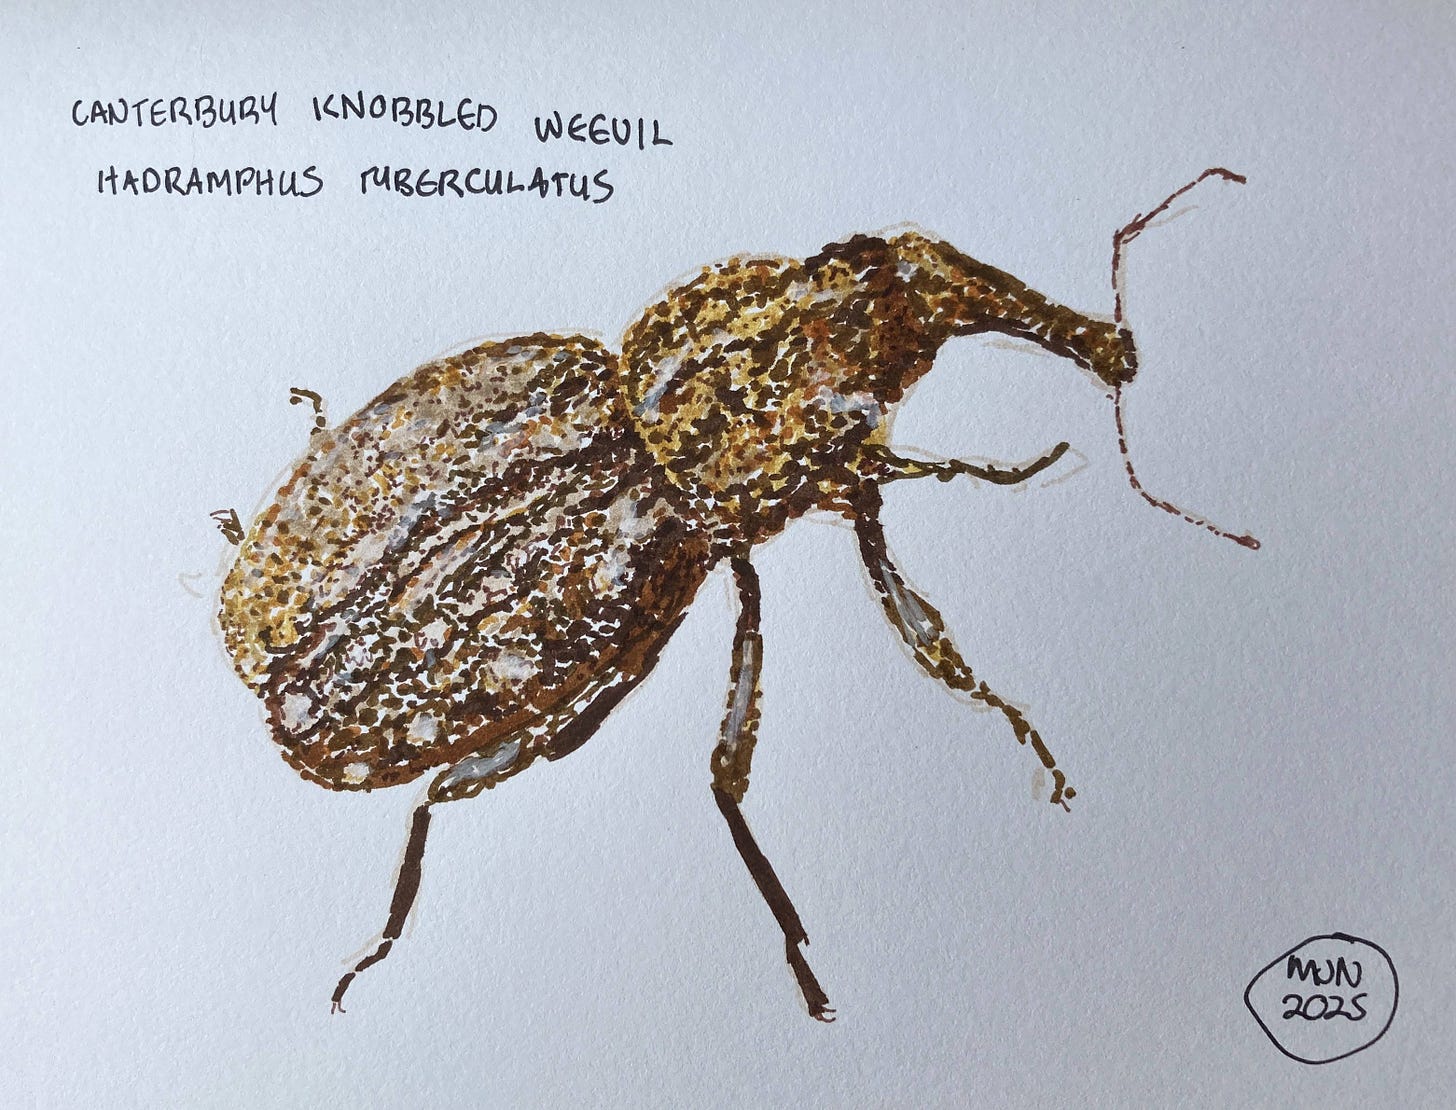 CANTERBURY KNOBBLED WEEVIL
HADRAMPHUS TUBERCULATUS
MJN
2025